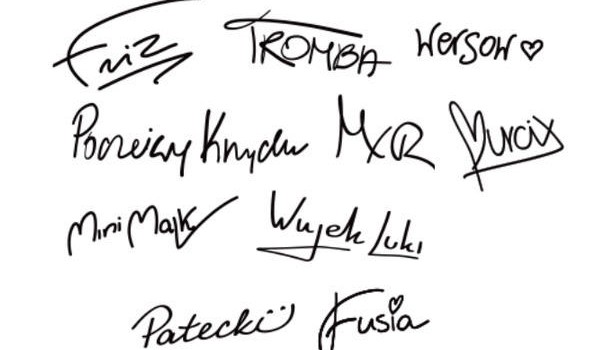 Friz TROMBA Wersow♡
Poczciwy Krzychu MXR Murcix
Mini Majk Wujek Łuki
Patecki Fusia